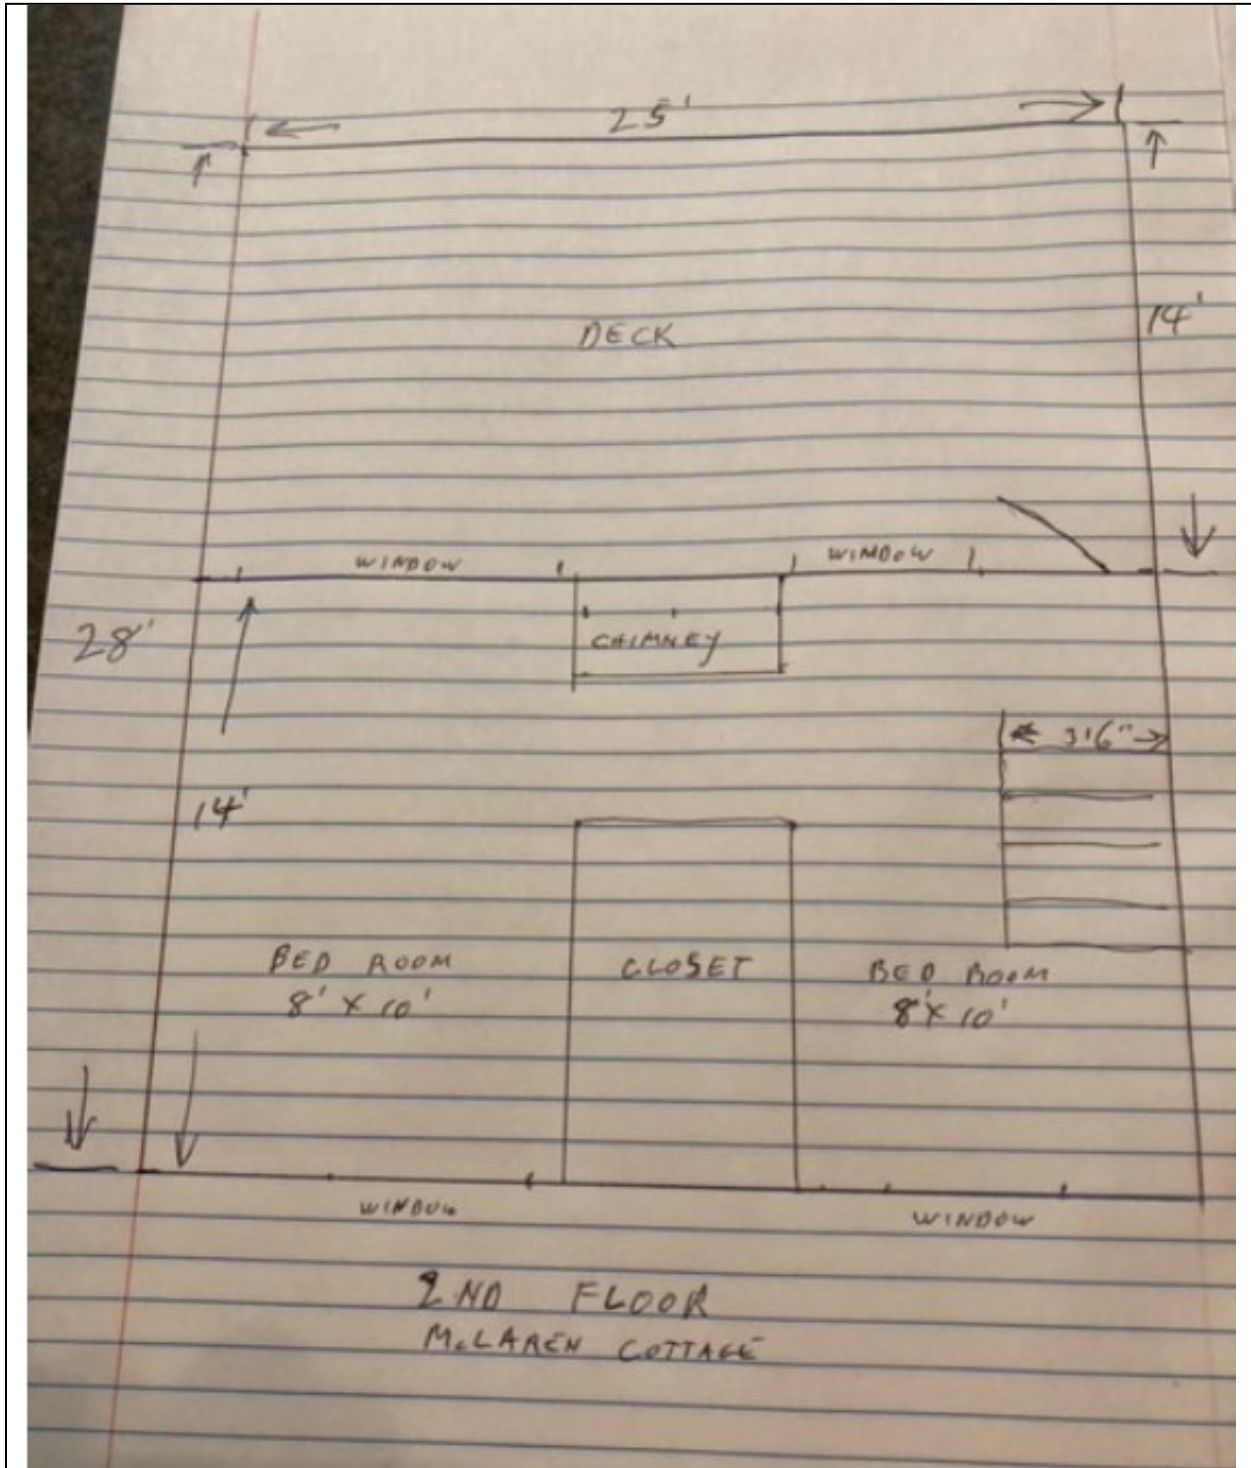 25'
DECK
14'
WINDOW
WINDOW
28'
CHIMNEY
3'6"
14'
BED ROOM
8' X 10'
CLOSET
BED ROOM
8' X 10'
WINDOW
WINDOW
2ND FLOOR
McLAREN COTTAGE